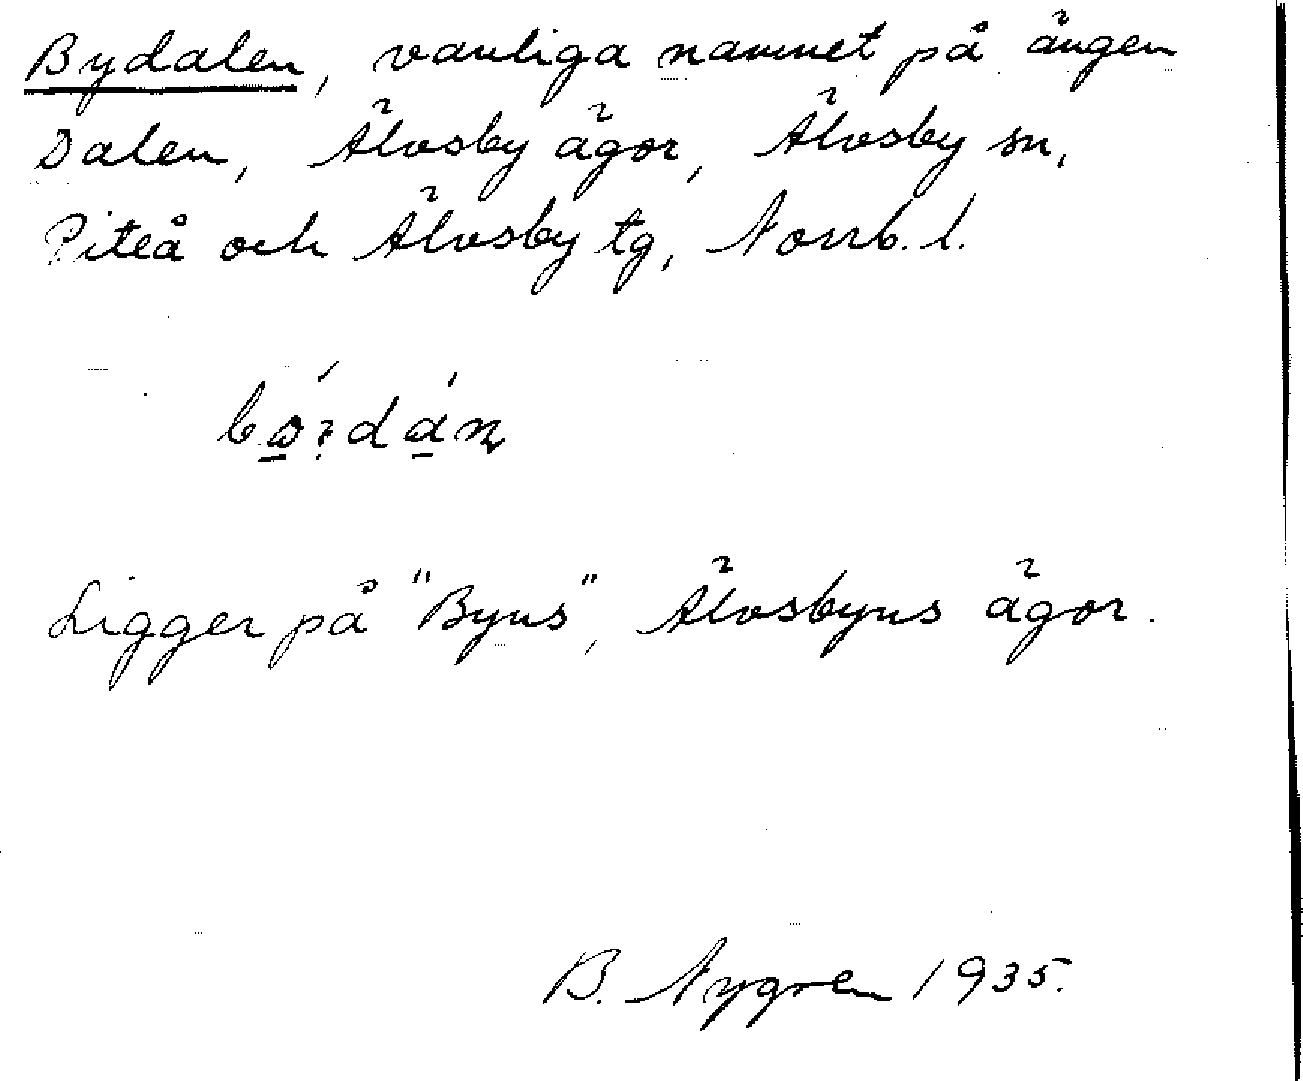 Bydalen, vanliga namnet på ängen
Dalen, Älvsby ägor, Älvsby sn,
Piteå och Älvsby tg, Norrb. l.
Ligger på "Byns", Älvsbyns ägor.
B. Nygren 1935.